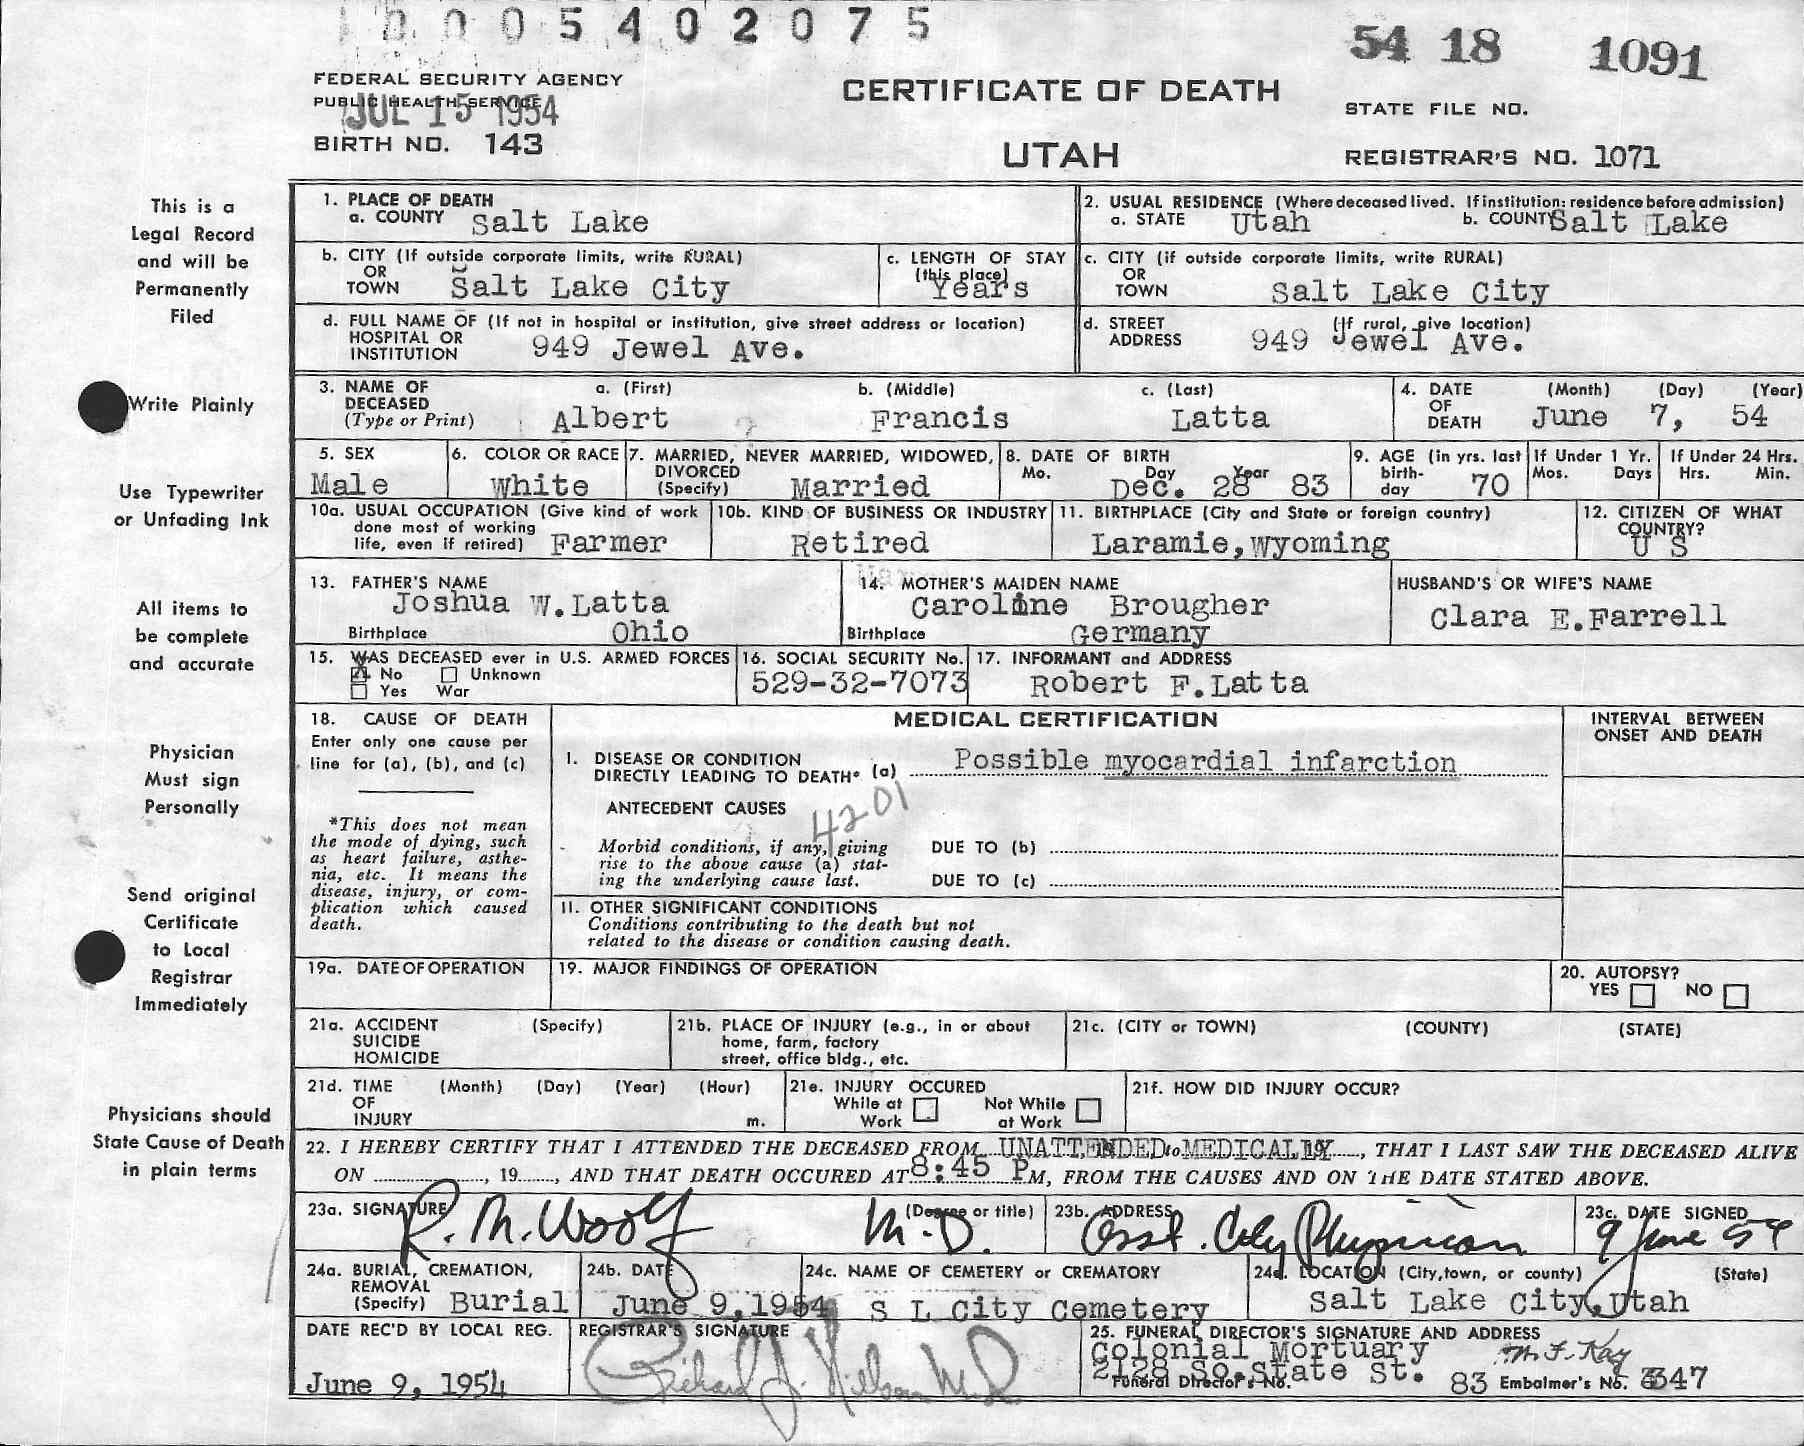 0005402075
54 18 1091
FEDERAL SECURITY AGENCY
PUBLIC HEALTH SERVICE
JUL 15 1954
BIRTH NO. 143
CERTIFICATE OF DEATH
UTAH
STATE FILE NO.
REGISTRAR'S NO. 1071
This is a
Legal Record
and will be
Permanently
Filed
Write Plainly
Use Typewriter
or Unfading Ink
All items to
be complete
and accurate
Physician
Must sign
Personally
Send original
Certificate
to Local
Registrar
Immediately
Physicians should
State Cause of Death
in plain terms
1. PLACE OF DEATH
a. COUNTY Salt Lake
2. USUAL RESIDENCE (Where deceased lived. If institution: residence before admission)
a. STATE Utah b. COUNTY Salt Lake
b. CITY (If outside corporate limits, write RURAL)
OR
TOWN Salt Lake City
c. LENGTH OF STAY
(this place)
Years
c. CITY (if outside corporate limits, write RURAL)
OR
TOWN Salt Lake City
d. FULL NAME OF (If not in hospital or institution, give street address or location)
HOSPITAL OR
INSTITUTION 949 Jewel Ave.
d. STREET (If rural, give location)
ADDRESS 949 Jewel Ave.
3. NAME OF a. (First) b. (Middle) c. (Last)
DECEASED
(Type or Print) Albert Francis Latta
4. DATE (Month) (Day) (Year)
OF
DEATH June 7, 54
5. SEX
Male
6. COLOR OR RACE
White
7. MARRIED, NEVER MARRIED, WIDOWED,
DIVORCED
(Specify) Married
8. DATE OF BIRTH
Mo. Day Year
Dec. 28 83
9. AGE (in yrs. last
birth-
day 70
If Under 1 Yr.
Mos. Days
If Under 24 Hrs.
Hrs. Min.
10a. USUAL OCCUPATION (Give kind of work
done most of working
life, even if retired) Farmer
10b. KIND OF BUSINESS OR INDUSTRY
Retired
11. BIRTHPLACE (City and State or foreign country)
Laramie, Wyoming
12. CITIZEN OF WHAT
COUNTRY?
U S
13. FATHER'S NAME
Joshua W. Latta
Birthplace Ohio
14. MOTHER'S MAIDEN NAME
Caroline Brougher
Birthplace Germany
HUSBAND'S OR WIFE'S NAME
Clara E. Farrell
15. WAS DECEASED ever in U.S. ARMED FORCES
X No Unknown
Yes War
16. SOCIAL SECURITY No.
529-32-7073
17. INFORMANT and ADDRESS
Robert F. Latta
18. CAUSE OF DEATH
Enter only one cause per
line for (a), (b), and (c)
*This does not mean
the mode of dying, such
as heart failure, asthe-
nia, etc. It means the
disease, injury, or com-
plication which caused
death.
MEDICAL CERTIFICATION
INTERVAL BETWEEN
ONSET AND DEATH
I. DISEASE OR CONDITION
DIRECTLY LEADING TO DEATH* (a) Possible myocardial infarction
ANTECEDENT CAUSES
4201
Morbid conditions, if any, giving
rise to the above cause (a) stat-
ing the underlying cause last.
DUE TO (b)
DUE TO (c)
II. OTHER SIGNIFICANT CONDITIONS
Conditions contributing to the death but not
related to the disease or condition causing death.
19a. DATE OF OPERATION
19. MAJOR FINDINGS OF OPERATION
20. AUTOPSY?
YES NO
21a. ACCIDENT (Specify)
SUICIDE
HOMICIDE
21b. PLACE OF INJURY (e.g., in or about
home, farm, factory
street, office bldg., etc.
21c. (CITY or TOWN) (COUNTY) (STATE)
21d. TIME (Month) (Day) (Year) (Hour)
OF
INJURY m.
21e. INJURY OCCURED
While at Not While
Work at Work
21f. HOW DID INJURY OCCUR?
22. I HEREBY CERTIFY THAT I ATTENDED THE DECEASED FROM UNATTENDED to MEDICALLY, THAT I LAST SAW THE DECEASED ALIVE
ON , 19 , AND THAT DEATH OCCURED AT 8:45 P M, FROM THE CAUSES AND ON THE DATE STATED ABOVE.
23a. SIGNATURE (Degree or title)
R. M. Woolf M.D.
23b. ADDRESS
Asst. City Physician
23c. DATE SIGNED
9 June 54
24a. BURIAL, CREMATION,
REMOVAL
(Specify) Burial
24b. DATE
June 9, 1954
24c. NAME OF CEMETERY or CREMATORY
S L City Cemetery
24d. LOCATION (City, town, or county) (State)
Salt Lake City, Utah
DATE REC'D BY LOCAL REG.
June 9, 1954
REGISTRAR'S SIGNATURE
Richard J. Nilson M.D.
25. FUNERAL DIRECTOR'S SIGNATURE AND ADDRESS
Colonial Mortuary M. F. Kay
2128 So. State St.
Funeral Director's No. 83 Embalmer's No. 347